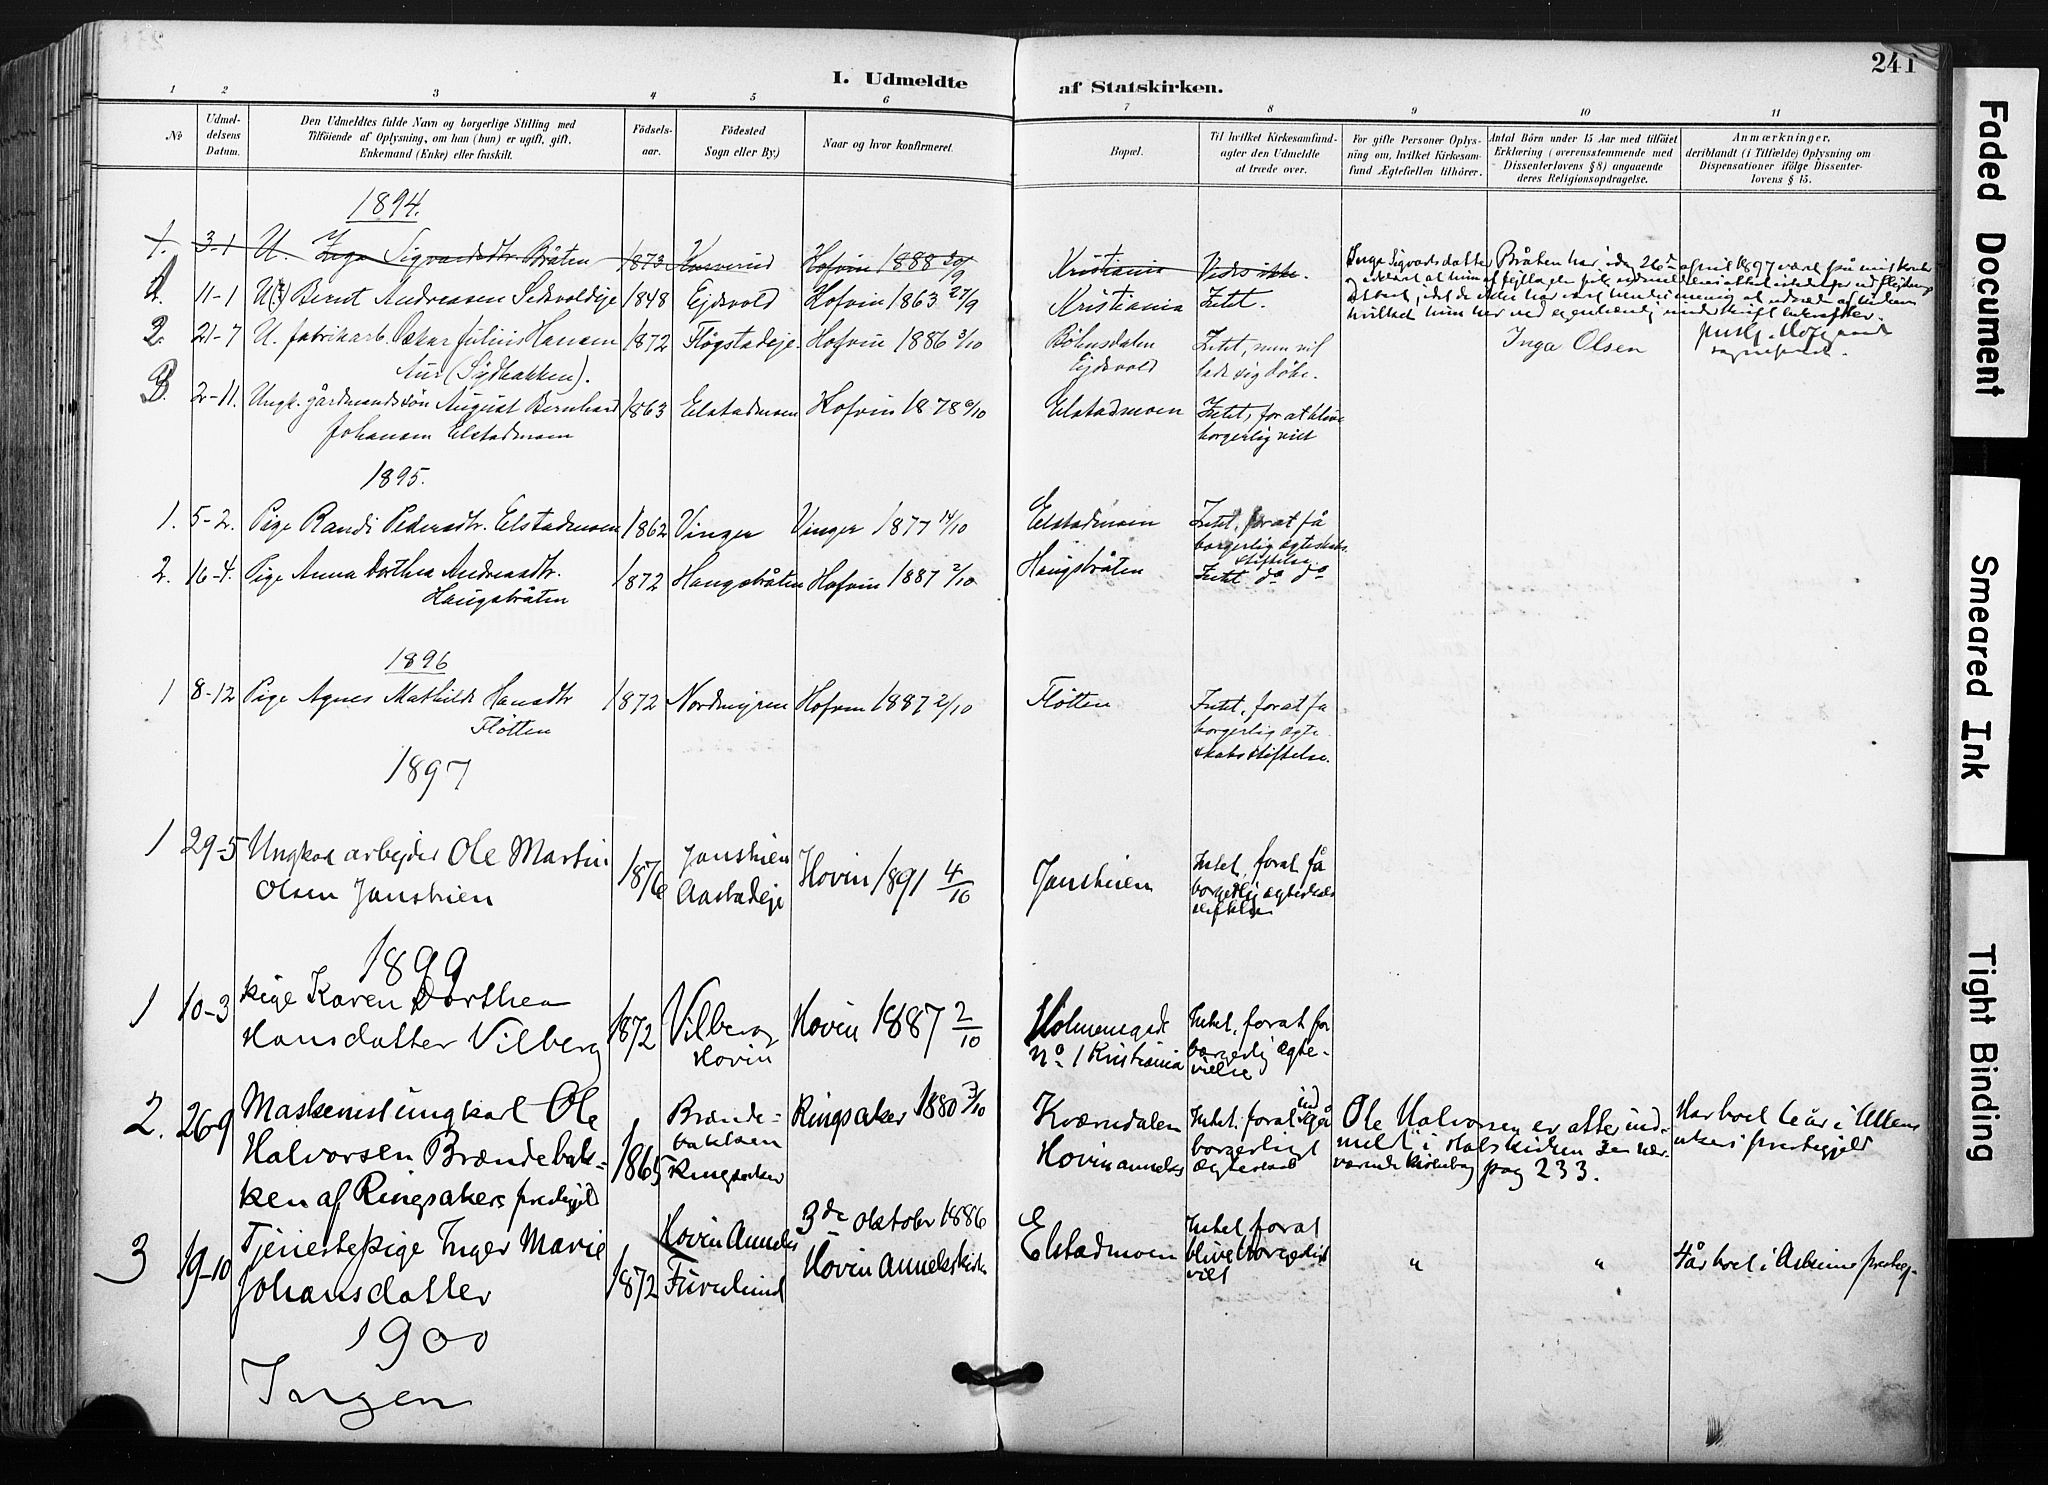 241
I. Udmeldte af Statskirken.
1 2 3 4 5 6 7 8 9 10 11
No
Udmel-
delsens
Datum.
Den Udmeldtes fulde Navn og borgerlige Stilling med
Tilføiende af Oplysning, om han (hun) er ugift, gift,
Enkemand (Enke) eller fraskilt.
Fødsels-
aar.
Fødested
Sogn eller By.)
Naar og hvor konfirmeret.
Bopæl.
Til hvilket Kirkesamfund-
agter den Udmeldte
at træde over.
For gifte Personer Oplys-
ning om, hvilket Kirkesam-
fund Ægtefællen tilhører.
Antal Børn under 15 Aar med tilføiet
Erklæring (overensstemmende med
Dissenterlovens § 8) angaaende
deres Religionsopdragelse.
Anmærkninger,
deriblandt (i Tilfælde) Oplysning om
Dispensationer ifølge Dissenter-
lovens § 15.
1894.
1. 3-1 U. Inga Sigvardsdtr. Bråten 1873 Hofvin 1888 Kristiania Vides ikke.
Inga Sigvardsdatter Bråten har idag 26de april 1897 været på mit kontor
11-1 Bernt Andreasen Sedvoldeje 1848 Ejdsvold Hofvin 1863 27/9 Kristiania Intet.
2. 21-7 U. fabrikarb. Oskar Julius Hansen 1872 Fløgstadeje. Hofvin 1886 3/10 Bøhnsdalen
Ejdsvold
Intet, men vil
lade sig døbe.
Inga Olsen
sogneprest.
Aur (Sydbakken).
3. 2-11. Ungk. gårdmandssøn August Bernhard
Johansen Elstadmoen
1863 Elstadmoen Hofvin 1878 6/10 Elstadmoen Intet, for at blive
borgerlig viet
1895.
1. 5-2. Pige Randi Pedersdtr. Elstadmoen 1862 Vinger Vinger 1877 14/10 Elstadmoen Intet, for at få
borgerlig ægteskabs
stiftelse
2. 16-4. Pige Anna Dorthea Andreasdtr.
Haugsbråten
1872 Haugsbråten Hofvin 1887 2/10 Haugsbråten Intet do do
1896
1 8-12 Pige Agnes Mathilde Hansdtr
Fløtten
1872 Nordmyren Hofvin 1887 2/10 Fløtten Intet, for at få
borgerlig ægte
skabsstiftelse.
1897
1 29-5 Ungkar arbejder Ole Martin
Olsen Janstuen
1876 Janstuen
Aastadeje
Hovin 1891 4/10 Janstuen Intet, forat få
borgerlig ægteskabs
stiftelse
1899
1 10-3 pige Karen Dorthea
Hansdatter Vilberg
1872 Vilberg
Hovin
Hovin 1887 2/10 Holmensgade
No 1 Kristiania
Intet, forat få
borgerlig ægte-
vielse
2. 26-9 Maskenist ungkarl Ole
Halvorsen Brændebak-
ken af Ringsakers prestegjeld
1865 Brænde-
bakken
Ringsaker
Ringsaker 1880 3/10 Kværndalen
Hovin anneks
Intet, forat indgå
borgerligt
ægteskab
Ole Halvorsen er atter ind-
meldt i statskirken se nær-
værende kirkebog pag 233.
Har boet 6 år i Ullens
akers prestegjeld
3 19-10 Tjenestepige Inger Marie
Johansdatter
1872 Hovin Anneks
Furulund
3de oktober 1886
Hovin Annekskirke
Elstadmoen Intet, forat
blive borgerligt
viet
" " 4 år boet i Askims presteg.
1900
Ingen
Faded Document
Smeared Ink
Tight Binding